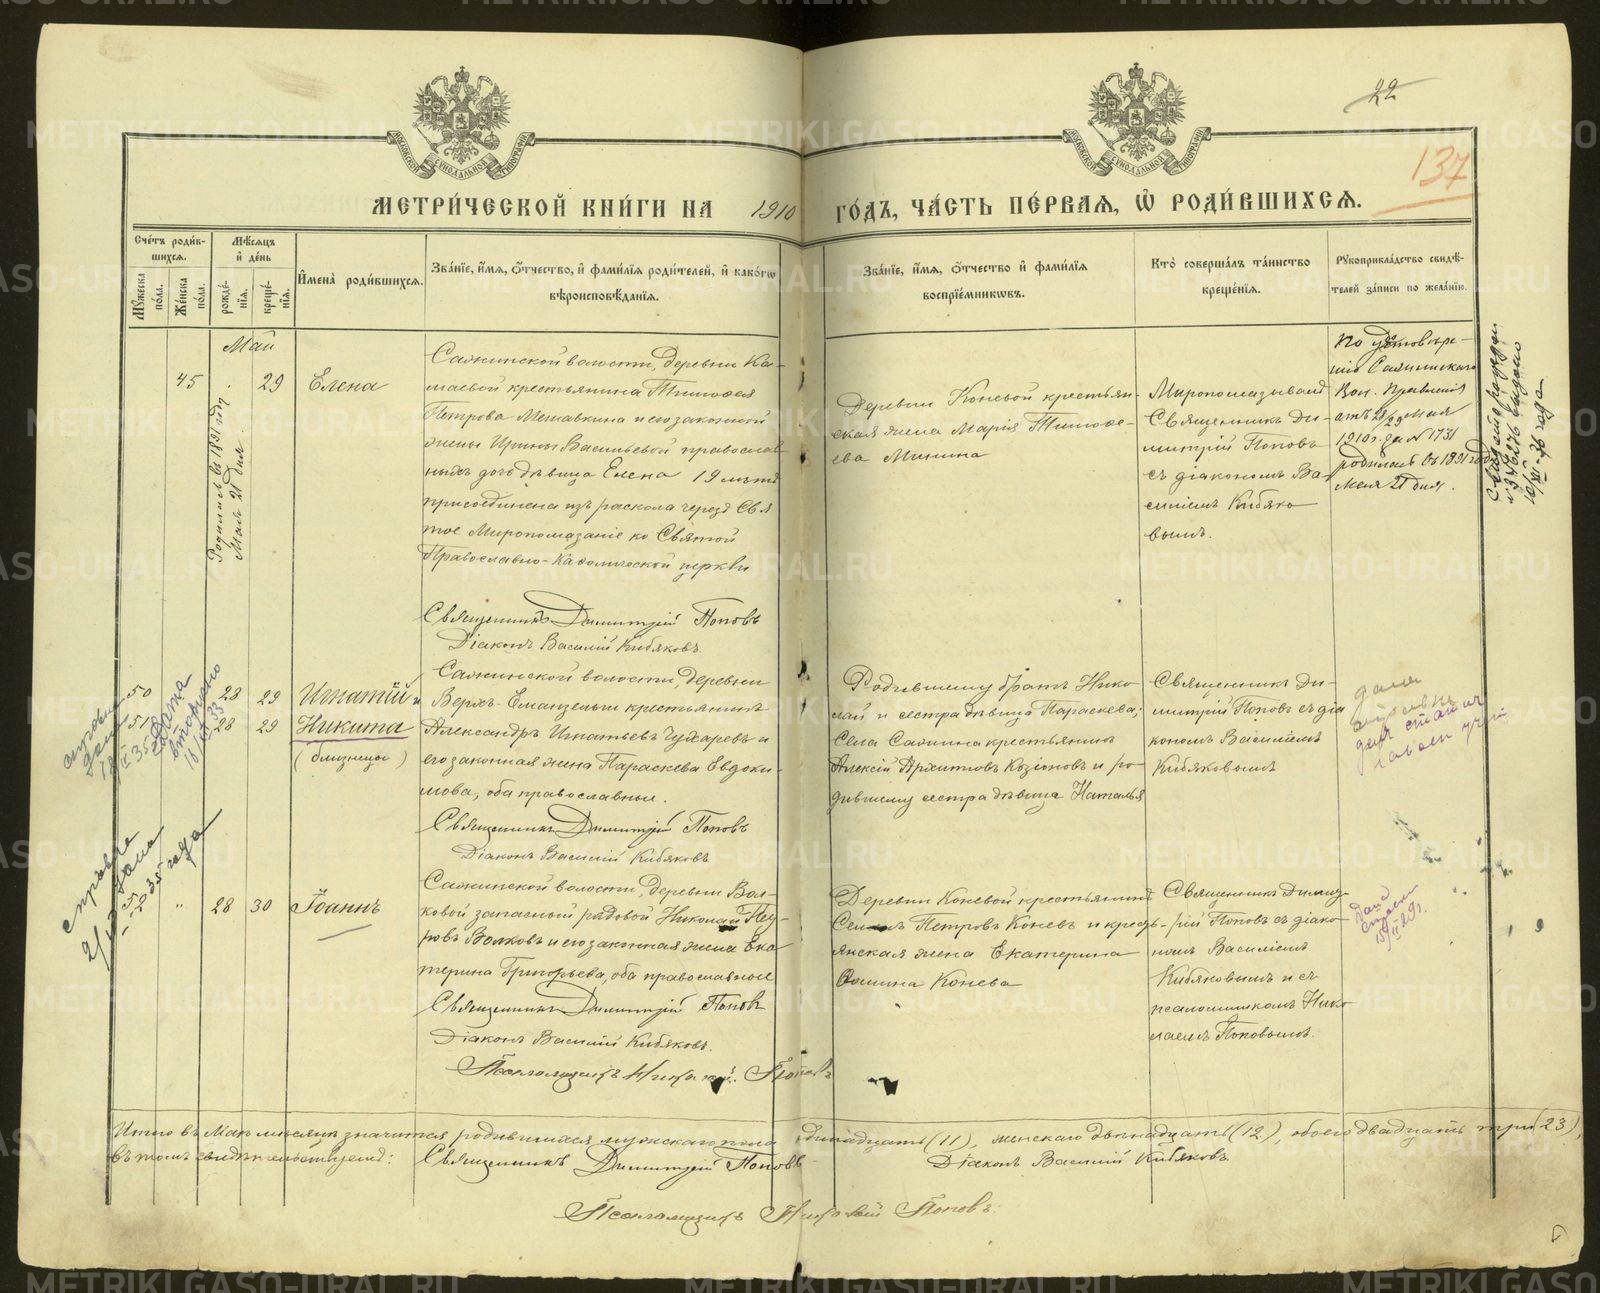 22
137
МОСКОВСКОЙ СУНОДАЛЬНОЙ ТИПОГРАФІИ
МОСКОВСКОЙ СУНОДАЛЬНОЙ ТИПОГРАФІИ
МЕТРИ́ЧЕСКОЙ КНИ́ГИ НА 1910 ГО́ДЪ, ЧА́СТЬ ПЕ́РВАѦ, Ѡ РОДИ́ВШИХСѦ.
Сче́тъ роди́в-
шихсѧ.
Мѣ́сѧцъ
и҆ де́нь
Мꙋ́жеска
по́ла.
Же́нска
по́ла.
рожде́-
нїѧ.
креще́-
нїѧ.
И҆мена̀ роди́вшихсѧ.
Зва́нїе, и҆́мѧ, ѻ҆́тчество, и҆ фами́лїѧ роди́телей, и҆ како́гѡ
вѣроисповѣ́данїѧ.
Зва́нїе, и҆́мѧ, ѻ҆́тчество и҆ фами́лїѧ
воспрїе́мникѡвъ.
Кто̀ соверша́лъ та́инство
креще́нїѧ.
Рꙋкоприкла́дство свидѣ́-
телей за́писи по жела́нїю.
Май
45
29
Родилась въ 1891 году
Мая 21 дня.
Елена
Сажинской волости, деревни Ка-
маевой крестьянина Тимоѳея
Петрова Мешавкина и его законной
жены Ирины Васильевой православ-
ныхъ дочь дѣвица Елена 19 лѣтъ
присоединена изъ раскола чрезъ Свя
тое Миропомазаніе ко Святой
Православно-Каѳолической церкви
Священникъ Димитрій Поповъ
Діаконъ Василій Кибяковъ.
Деревни Коневой крестьян-
ская жена Марія Тимоѳе-
ева Минина
Миропомазывалъ
Священникъ Ди-
митрій Поповъ
съ діакономъ Ва-
силіемъ Кибяко
вымъ.
По удостовѣре-
нію Сажинскаго
Вол. Правленія
отъ 28/29 Мая
1910 г. за № 1731
родилась въ 1891 году
Мая 21 дня.
50
28
29
Игнатій и
51
28
29
Никита
(близнецы)
Сажинской волости, деревни
Верхъ-Емандельги крестьянинъ
Александръ Игнатьевъ Чухаревъ и
его законная жена Параскева Евдоки-
мова, оба православные.
Священникъ Димитрій Поповъ
Діаконъ Василій Кибяковъ
Родившему братъ Нико
лай и сестра дѣвица Параскева;
Села Сажина крестьянинъ
Алексій Архиповъ Козіоновъ и ро-
дившему сестра дѣвица Наталья
Священникъ Ди-
митрій Поповъ съ діа
кономъ Василіемъ
Кибяковымъ
справка
дана
28
30
Іоаннъ
Сажинской волости, деревни Вол-
ковой запасный рядовой Николай Пет-
ровъ Волковъ и его законная жена Ека
терина Григорьева, оба православные
Священникъ Димитрій Поповъ
Діаконъ Василій Кибяковъ.
Псаломщикъ Николай Поповъ
Деревни Коневой крестьянинъ
Петровъ Коневъ и кресть-
янская жена Екатерина
Ѳомина Конева
Священникъ Димит-
рій Поповъ съ діако-
номъ Василіемъ
Кибяковымъ и съ
псаломщикомъ Нико
лаемъ Поповымъ.
Итого въ Маѣ мѣсяцѣ значится родившихся мужскаго пола одинадцать (11), женскаго двѣнадцать (12), обоего двадцать три (23),
въ томъ свидѣтельствуемъ: Священникъ Димитрій Поповъ Діаконъ Василій Кибяковъ.
Псаломщикъ Николай Поповъ.
METRIKI.GASO-URAL.RU